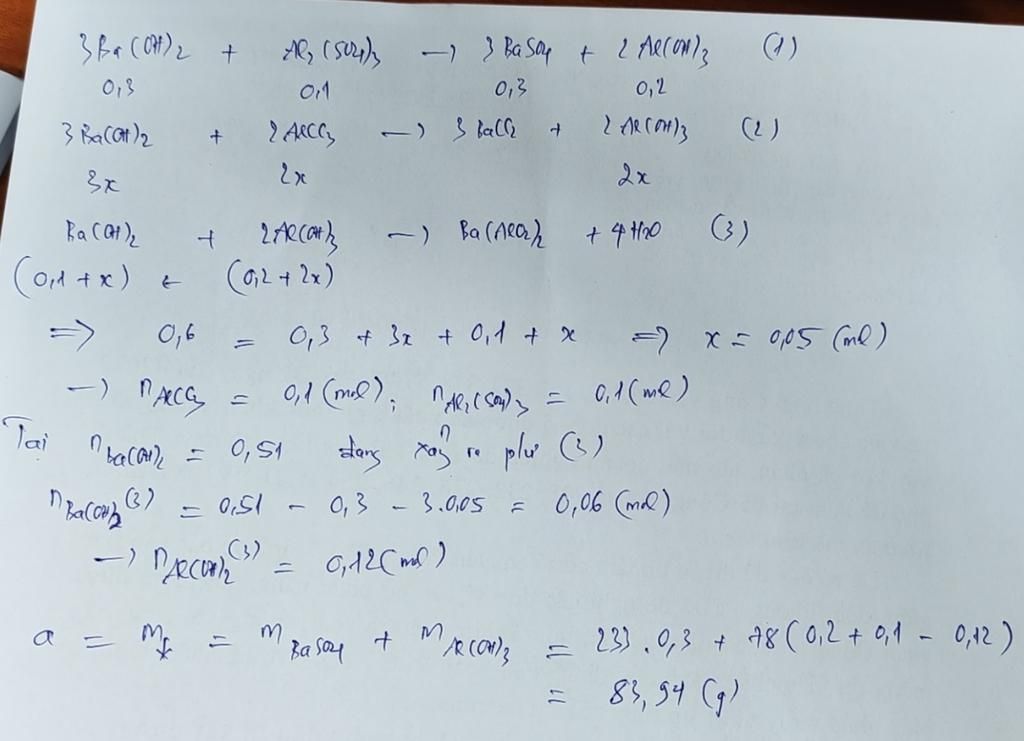 3Ba(OH)2 + Al2(SO4)3 → 3BaSO4 + 2Al(OH)3 (1)
0,3 0,1 0,3 0,2
3Ba(OH)2 + 2AlCl3 → 3BaCl2 + 2Al(OH)3 (2)
3x 2x 2x
Ba(OH)2 + 2Al(OH)3 → Ba(AlO2)2 + 4H2O (3)
(0,1 + x) ← (0,2 + 2x)
⇒ 0,6 = 0,3 + 3x + 0,1 + x ⇒ x = 0,05 (mol)
→ nAlCl3 = 0,1 (mol); nAl2(SO4)3 = 0,1 (mol)
Tại nBa(OH)2 = 0,51 đang xảy ra pứ (3)
nBa(OH)2 (3) = 0,51 - 0,3 - 3.0,05 = 0,06 (mol)
→ nAl(OH)2 (3) = 0,12 (mol)
a = m↓ = mBaSO4 + mAl(OH)3 = 233.0,3 + 78(0,2 + 0,1 - 0,12)
= 83,94 (g)